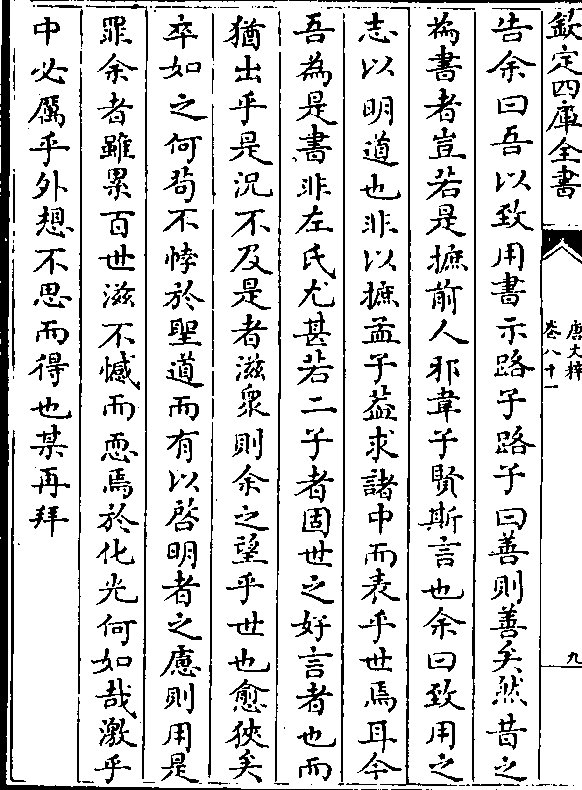 欽定四庫全書
唐文粹
卷八十一
九
告余曰吾以致用書示路子路子曰善則善矣然昔之
為書者豈若是摭前人邪韋子賢斯言也余曰致用之
志以明道也非以摭孟子葢求諸中而表乎世焉耳今
吾為是書非左氏尤甚若二子者固世之好言者也而
猶出乎是況不及是者滋衆則余之望乎世也愈狹矣
卒如之何茍不悖於聖道而有以啓明者之慮則用是
罪余者雖累百世滋不憾而恧焉於化光何如哉激乎
中必厲乎外想不思而得也某再拜